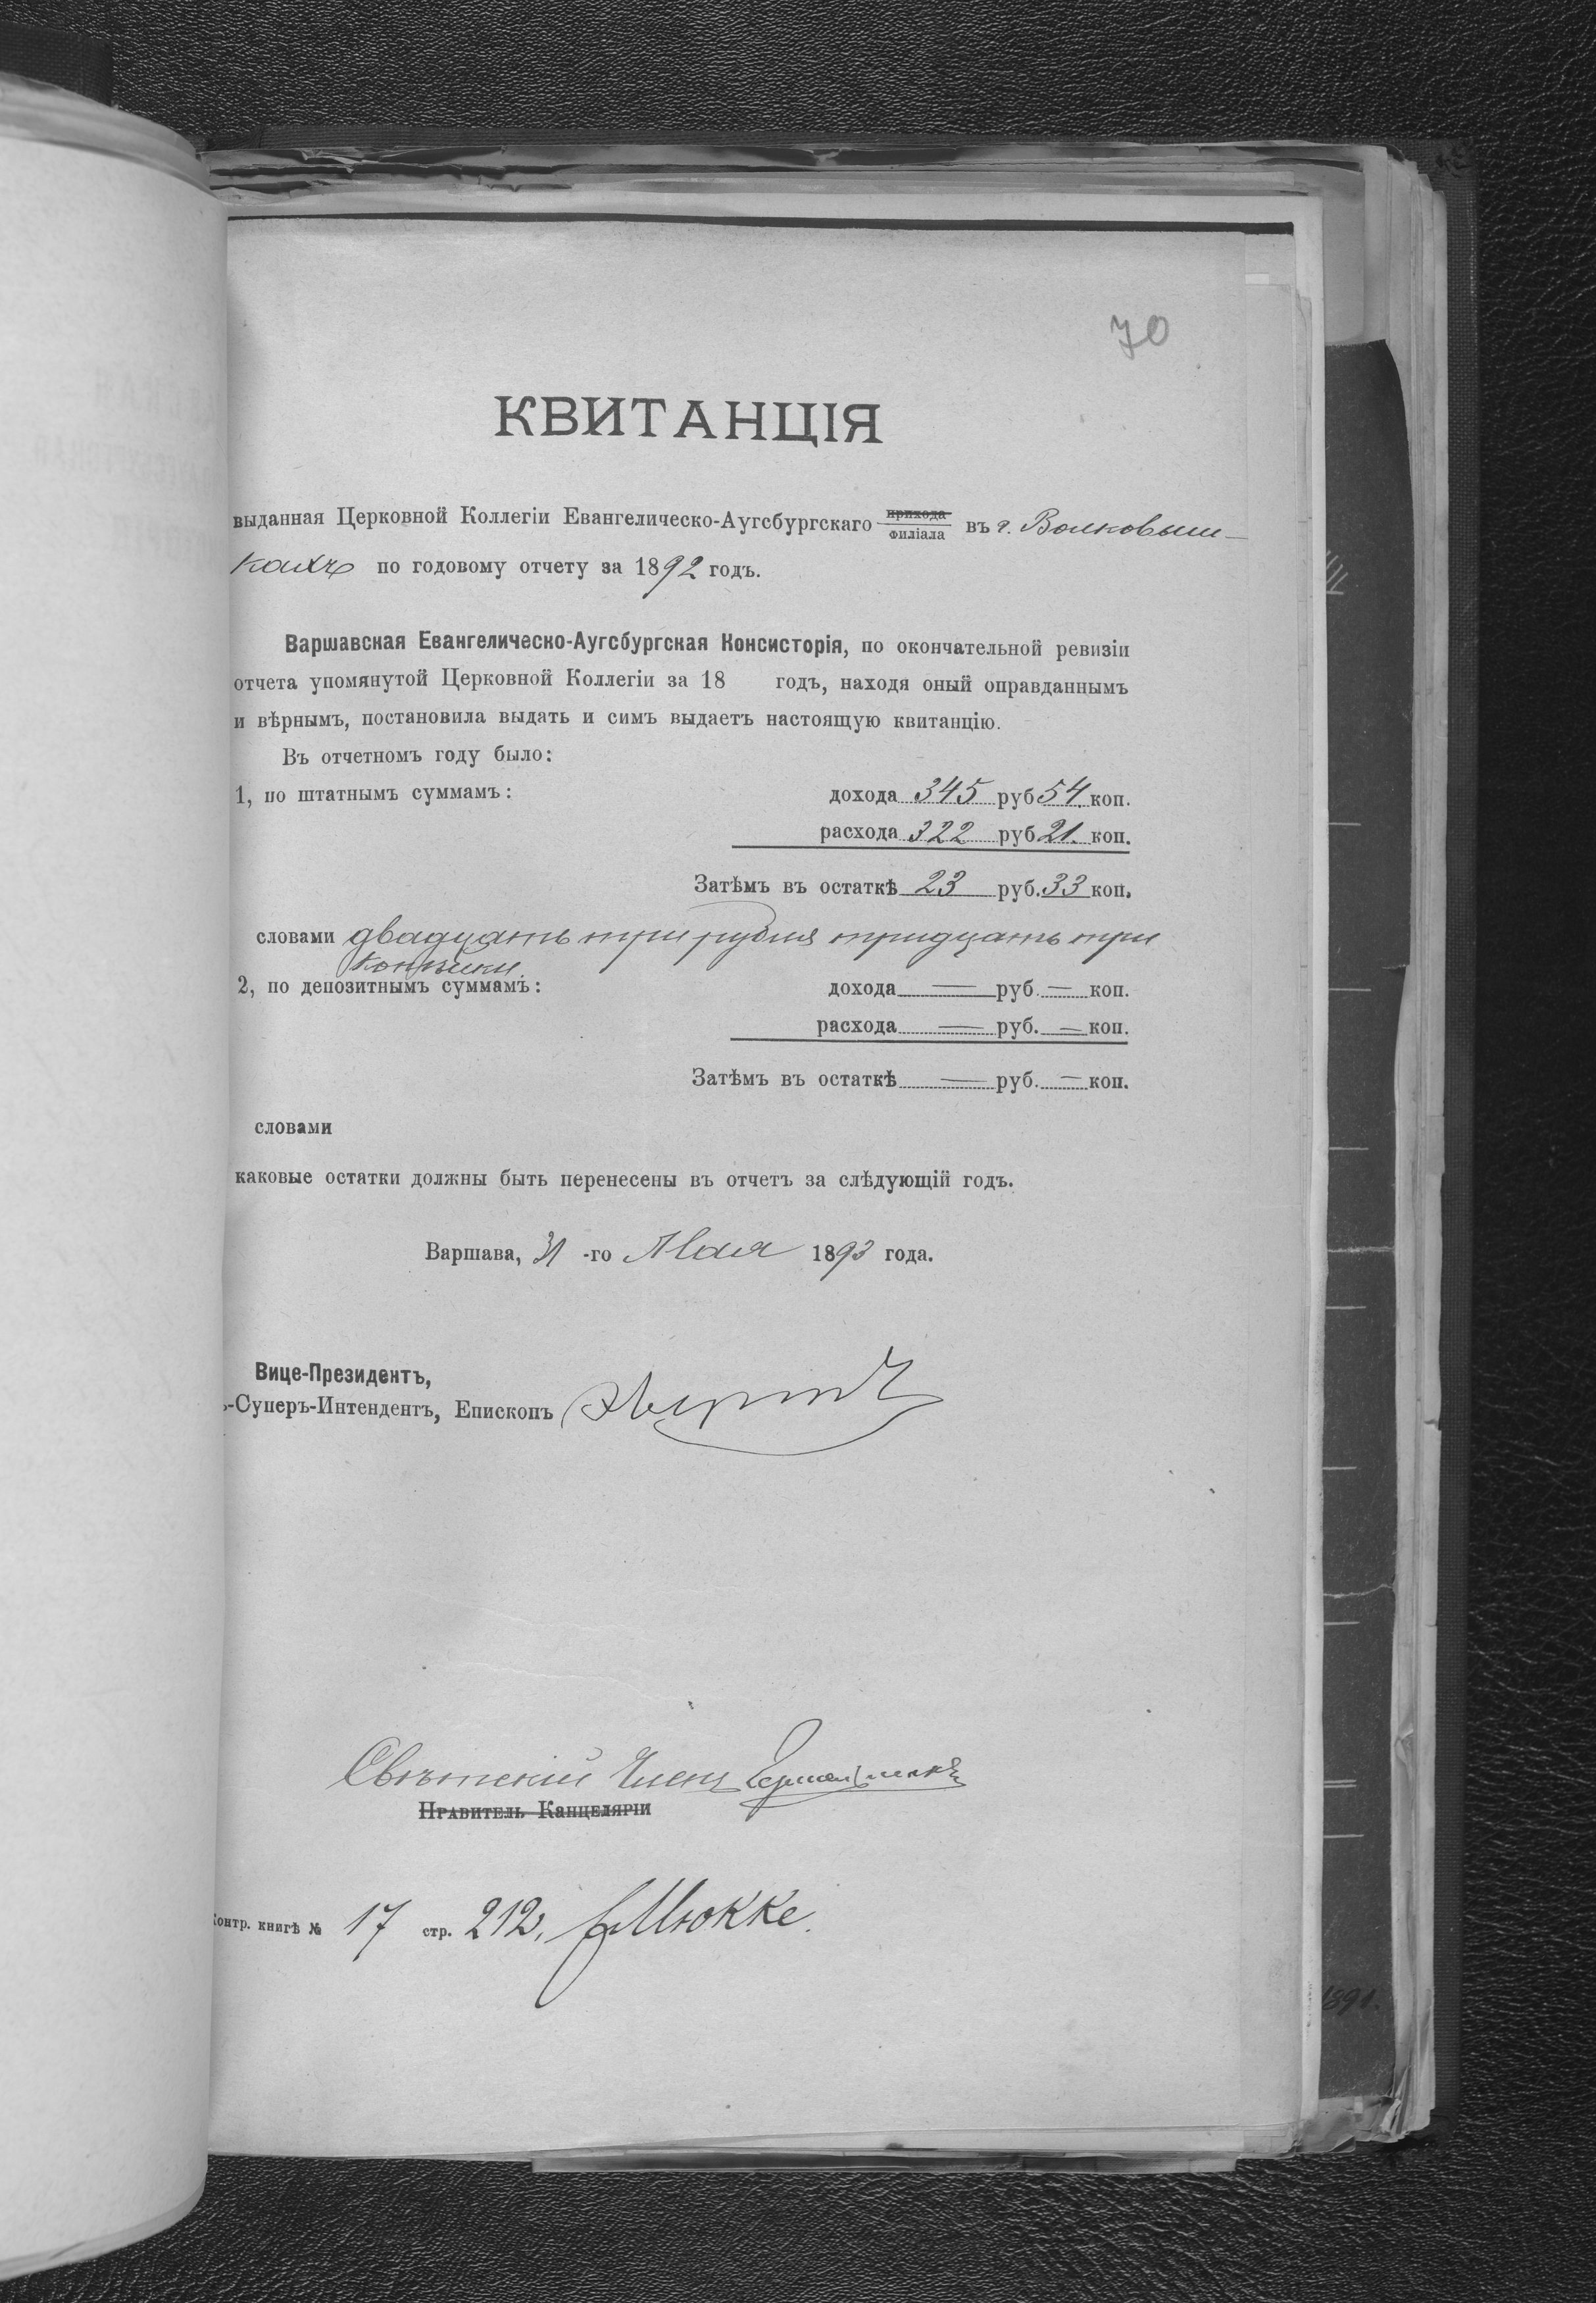 70
КВИТАНЦІЯ
выданная Церковной Коллегіи Евангелическо-Аугсбургскаго прихода филіала въ г. Волковыш-
кахъ по годовому отчету за 1892 годъ.
Варшавская Евангелическо-Аугсбургская Консисторія, по окончательной ревизіи
отчета упомянутой Церковной Коллегіи за 18 годъ, находя оный оправданнымъ
и вѣрнымъ, постановила выдать и симъ выдаетъ настоящую квитанцію.
Въ отчетномъ году было:
1, по штатнымъ суммамъ: дохода 345 руб 54 коп.
расхода 322 руб 21. коп.
Затѣмъ въ остаткѣ 23 руб. 33 коп.
словами двадцать три рубля тридцать три
копѣйки.
2, по депозитнымъ суммамъ: дохода — руб. — коп.
расхода — руб. — коп.
Затѣмъ въ остаткѣ — руб. — коп.
словами
каковые остатки должны быть перенесены въ отчетъ за слѣдующій годъ.
Варшава, 31 -го Мая 1893 года.
Вице-Президентъ,
ъ-Суперъ-Интендентъ, Епископъ
Свѣтскій Членъ
Правитель Канцеляріи
Контр. книгѣ № 17 стр. 212, Мюкке.
1891.